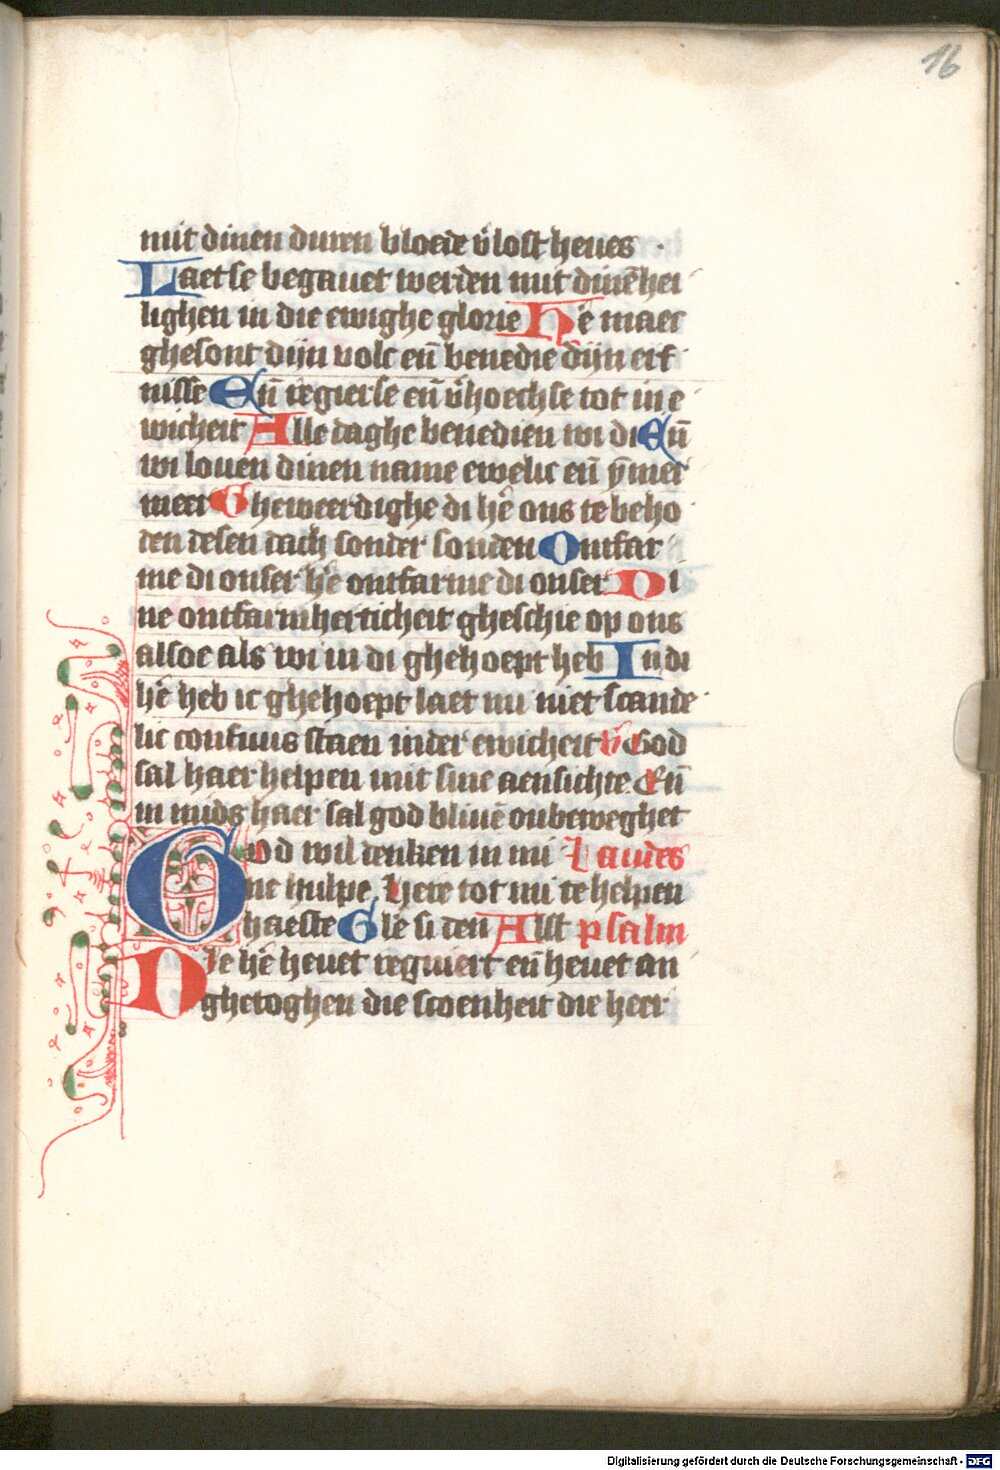 16
mit dinen duren bloede v̄lost heues
Laet se begauet werden mit dinē hei
lighen in die ewighe glorie Hē maec
ghesont dijn volc en̄ benedie dijn erf
nisse En̄ regier se en̄ v̄hoech se tot in e
wicheit Alle daghe benedien wi di En̄
wi louen dinen name ewelic en̄ ȳmer
meer Gheweerdighe di hē ons te beho
den desen dach sonder sonden Ontfar
me di onser hē ontfarme di onser Di
ne ontfarmherticheit gheschie op ons
alsoe als wi in di ghehoept heb In di
hē heb ic ghehoept laet mi niet scande
lic confuus staen inder ewicheit v̄ God
sal haer helpen mit sine aensichte En̄
in mids haer sal god bliuē onbeweghet
God wil denken in mi Laudes
ne hulpe Here tot mi te helpen
haeste Glē si den Alst psalm
Die hē heuet regniert en̄ heuet an
ghetoghen die scoenheit die heer
Digitalisierung gefördert durch die Deutsche Forschungsgemeinschaft - DFG